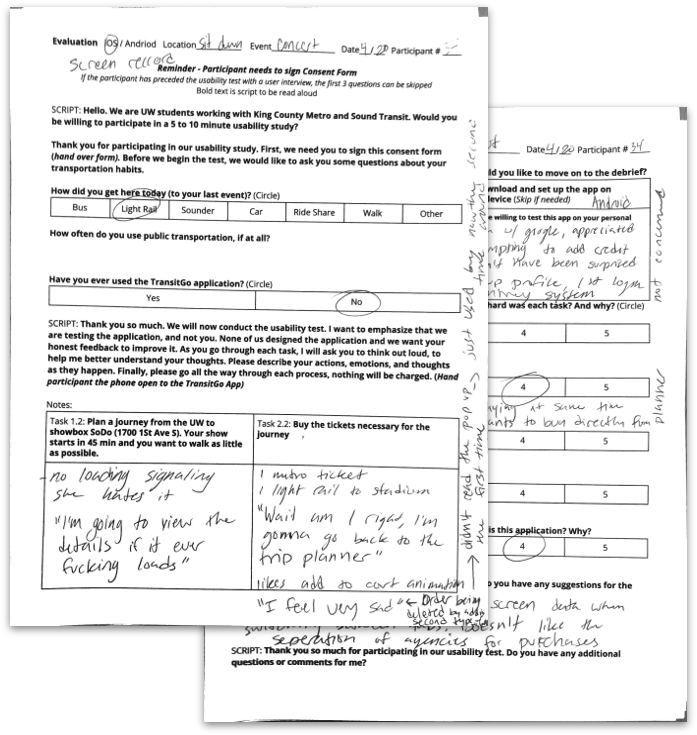 Evaluation iOS / Andriod Location Sit down Event Concert Date 4/20 Participant #
screen record
Reminder - Participant needs to sign Consent Form
If the participant has preceded the usability test with a user interview, the first 3 questions can be skipped
Bold text is script to be read aloud
SCRIPT: Hello. We are UW students working with King County Metro and Sound Transit. Would you
be willing to participate in a 5 to 10 minute usability study?
Thank you for participating in our usability study. First, we need you to sign this consent form
(hand over form). Before we begin the test, we would like to ask you some questions about your
transportation habits.
How did you get here today (to your last event)? (Circle)
Bus Light Rail Sounder Car Ride Share Walk Other
How often do you use public transportation, if at all?
Have you ever used the TransitGo application? (Circle)
Yes No
SCRIPT: Thank you so much. We will now conduct the usability test. I want to emphasize that we
are testing the application, and not you. None of us designed the application and we want your
honest feedback to improve it. As you go through each task, I will ask you to think out loud, to
help me better understand your thoughts. Please describe your actions, emotions, and thoughts
as they happen. Finally, please go all the way through each process, nothing will be charged. (Hand
participant the phone open to the TransitGo App)
Notes:
Task 1.2: Plan a journey from the UW to
showbox SoDo (1700 1St Ave S). Your show
starts in 45 min and you want to walk as little
as possible.
- no loading signaling
she hates it
"I'm going to view the
details if it ever
fucking loads"
Task 2.2: Buy the tickets necessary for the
journey
1 metro ticket
1 light rail to stadium
"Wait am I right, I'm
gonna go back to the
trip planner"
likes add to cart animation
"I feel very sad" ← Order being
deleted by adding
second type
→ didn't read the pop up → just used buy now the second
the first time time around
Date 4/20 Participant # 34
ld you like to move on to the debrief?
wnload and set up the app on
levice (Skip if needed) Android
e willing to test this app on your personal
w/ google, appreciated
mpting to add credit
have been surprised
p profile, 1st login
system
not concerned
hard was each task? And why? (Circle)
4 5
4 5
at same time
ants to buy directly from
planner
4 5
4 5
is this application? Why?
4 5
o you have any suggestions for the
screen data when
doesn't like the
seperation of agencies for purchases
SCRIPT: Thank you so much for participating in our usability test. Do you have any additional
questions or comments for me?